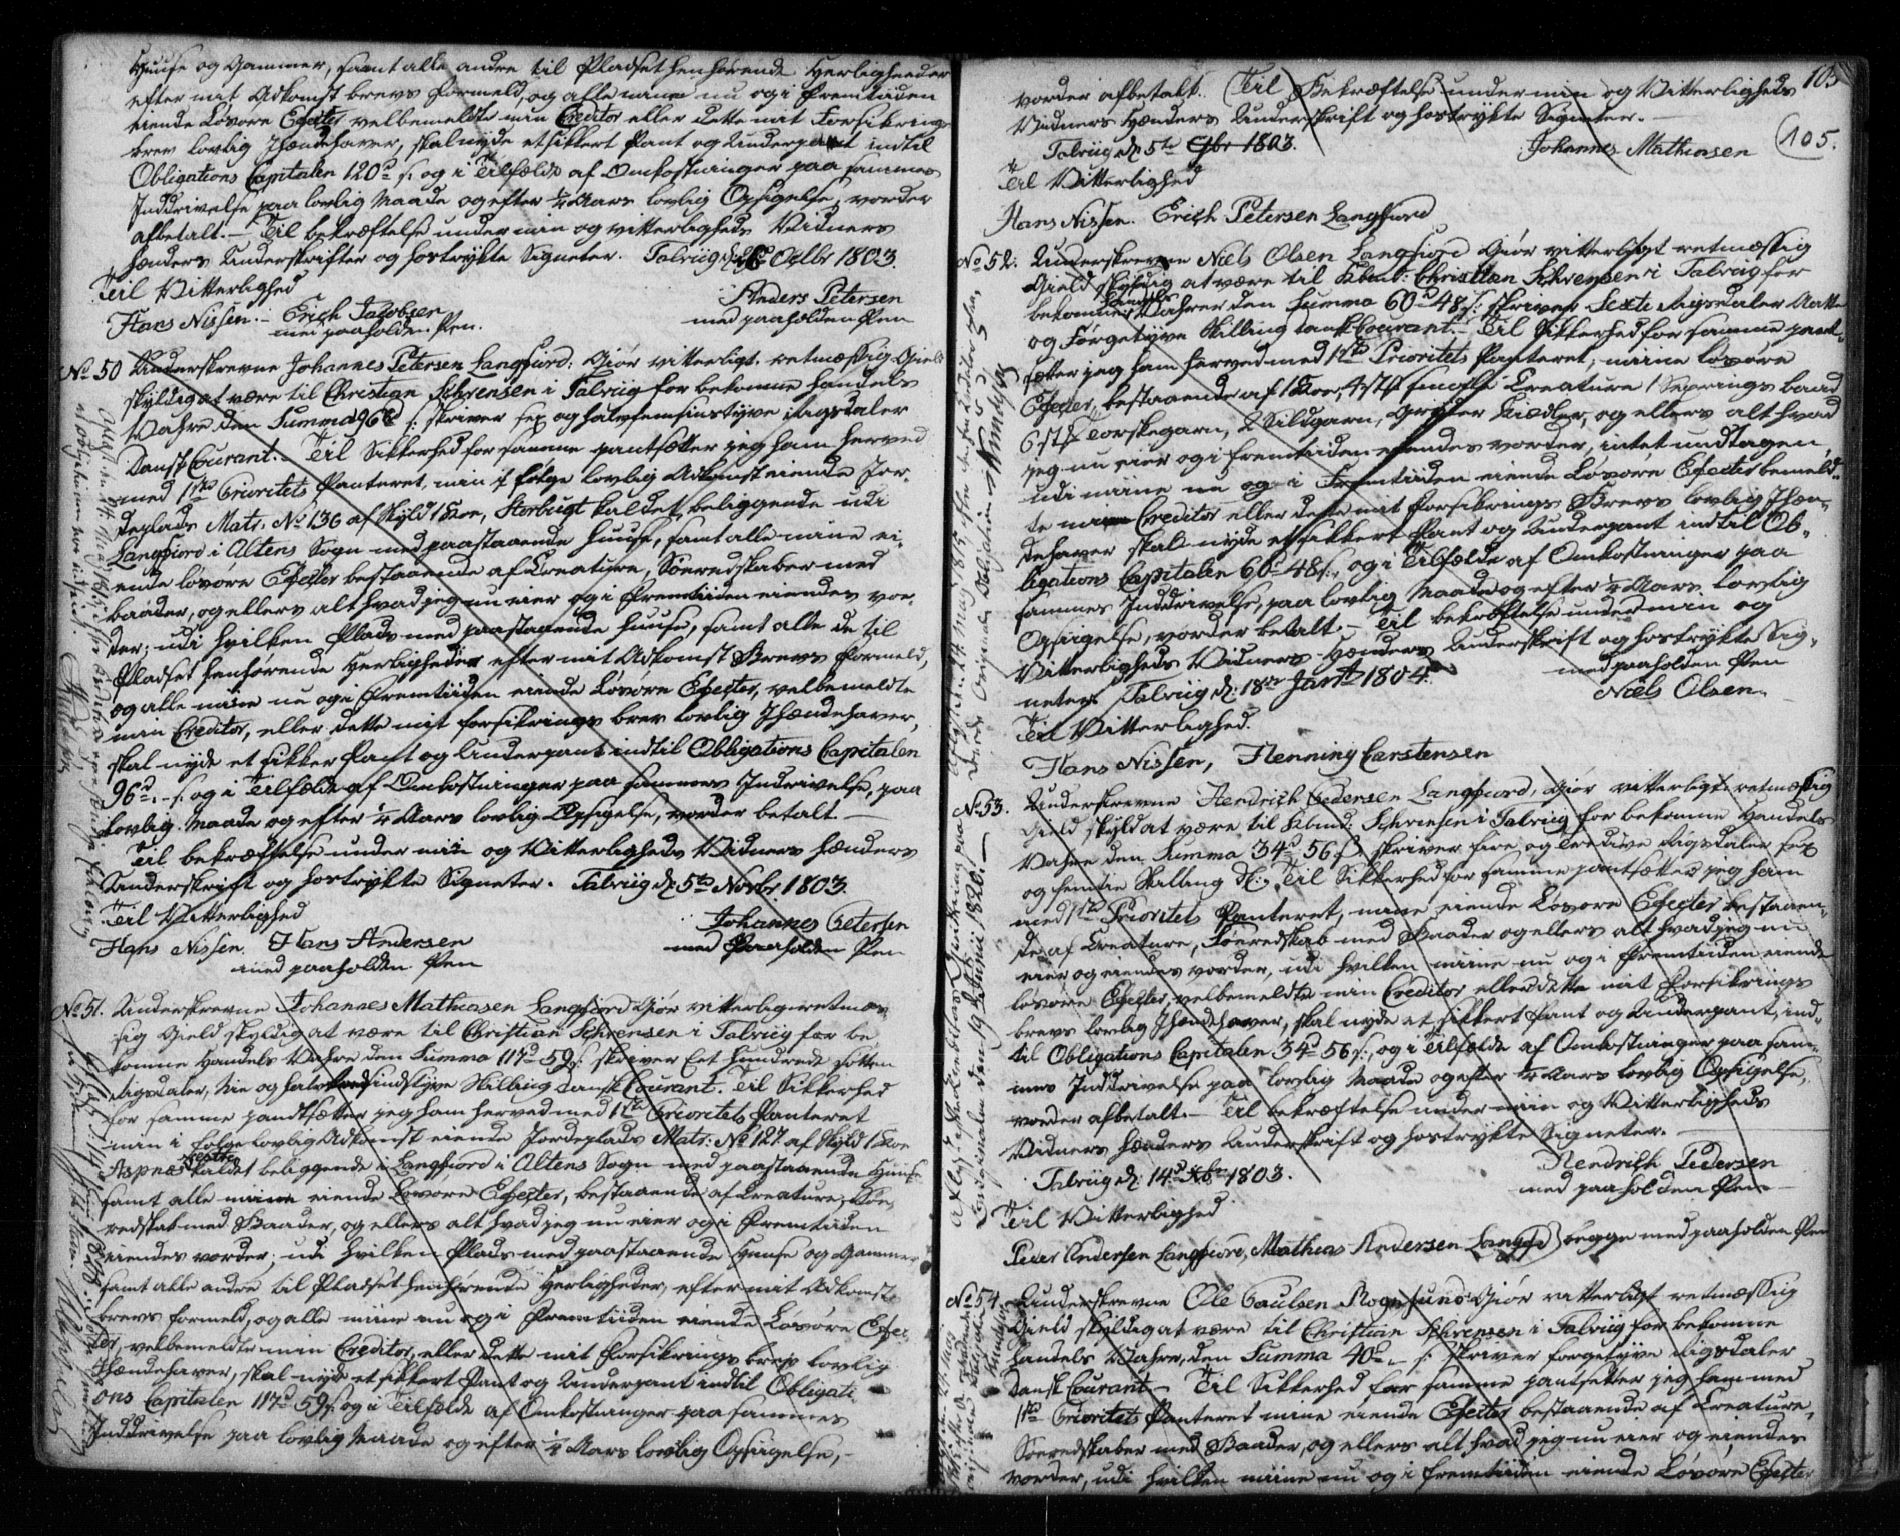 Huuse og Gammer, samt alle andre til Pladset henhørende Herligheeder
efter mit Adkomst brevs formeld, og alle mine nu og i Fremtiiden
eiende Løsøre Efecter velbemeldte min Creditor eller dette mit Forsikrings
brev lovlig Ihændehaver, skal nyde et sikkert Pant og Underpant indtil
Obligations Capitalen 120d s: og i Tilfælde af Omkostninger paa sammes
Inddrivelse paa lovlig Maade og efter 1/4 Aars lovlig Opsigelse, vorder
afbetalt. – Til bekræftelse under min og vitterligheds Vidners
Hænders Underskrifter og hostrykte Signeter. Talviig d: Octbr 1803.
Til Vitterlighed
Anders Petersen
Hans Nissen. – Erich Jacobsen
med paaholden Pen
med paaholden Pen.
No 50 Underskrevne Johannes Petersen Langfiord: Giør vitterligt. retmæssig Gield
skyldig at være til Christian Sehrensen i Talviig for bekomne Handels
Vahre den Summa 96d s: skriver sex og halvfemsinstyve Rigsdaler
Dansk Courant. – Til Sikkerhed for samme pantsætter jeg ham herved
med 1ste Prioritets Panteret, min if følge lovlig Adkomst eiende Jor-
deplads Matr. No 136 af Skyld 1 Koe, Storbugt kaldet, beliggende udi
Langfiord i Altens Sogn med paastaaende Huuse, samt alle mine ei-
ende løsøre Efecter bestaaende af Creature, Søeredskaber med
baader, og ellers alt hvad jeg nu eier og i Fremtiiden eiendes vor
der; udi hvilken Plads med paastaaende Huuse, samt alle de til
Pladset henhørende Herligheder efter mit Adkomst Brevs formeld,
og alle mine nu og i Fremtiiden eiende Løsøre Efecter, velbemeldte
min Creditor, eller dette mit forsikrings brev lovlig Ihændehaver,
skal nyde et sikker Pant og Underpant indtil Obligations Capitalen
96d. – s: og i Tilfælde af Omkostninger paa sammes Indrivelse, paa
Lovlig Maade og efter 1/4 Aars lovlig Opsigelse, vorder betalt. –
Til bekræftelse under min og Vitterligheds Vidners Hænders
Underskrift og hostrykte Signeter. Talviig d: 5te Novbr. 1803.
Til Vitterlighed
Johannes Petersen
Hans Nissen. Hans Andersen
med Paaholden Pen
med paaholden Pen
No 51. Underskrevne Johannes Mathiasen Langfiord Giør vitterlig retmæs
sig Gield skyldig at være til Christian Sehrensen i Talviig for be
komne Handels Vahre den Summa 117d 59s: skriver Eet hundrede sotten
Rigsdaler, Nie og halvtredsindstyve Skilling dansk Courant. Til Sikkerhed
for samme pandtsætter jeg ham herved med 1ste Prioritets Panteret
min i følge lovlig Adkomst eiende Jordeplads Matr: No 127 af Skyld 1 Koe
Aspnæs kaldet beliggende i Langfiord i Altens Sogn med paastaaende Huuse
samt alle mine eiende Løsøre Efecter, bestaaende af Creature, Søe,
redskab med Baader, og ellers alt hvad jeg nu eier og i Fremtiiden
eiendes vorder; udi hvilken Plads med paastaaende Huuse og Gammer
samt alle andre til Pladset henhørende Herligheder, efter mit Adkomst
brevs formeld, og alle mine nu og i Fremtiiden eiende Løsøre Efec
ter, velbemeldte min Creditor, eller dette mit Forsikrings brev lovlig
Ihændehaver, skal nyde et sikkert Pant og Underpant indtil Obligati
ons Capitalen 117d 59s: og i Tilfælde af Omkostninger paa sammes
Inddrivelse paa lovlig Maade og efter 1/4 Aars lovlig Opsigelse, –
105
105.
vorder afbetalt. Til Bekræftelse under min og Vitterligheds
Vidners Hænders Underskrift og hostrykte Signeter. –
Talviig d: 5te 1803.
Johannes Mathiasen
Til Vitterlighed
Hans Nissen. Erich Petersen Langfiord
No 52. Underskrevne Niels Olsen Langfiord Giør vitterligt retmæssig
Gield skyldig at være til Kbmd: Christian Sehrensen i Talviig for
bekomne Handels Vahrer den Summa 60d 48s: skriver Sexti Rigsdaler Aatte
og Førgetyve Skilling dansk Courant. – Til Sikkerhed for samme pant-
sætter jeg ham herved med 1ste Prioritets Panteret, mine løsøre
Efecter, bestaaende af 1 Koe, 4 stk smaae Creature 1 Sexrings baad
6 stk Torskegarn, 2 Sildgarn, Gryder Kiedler, og ellers alt hvad
jeg nu eier og i fremtiiden eiendes vorder, intet undtagen,
udi mine nu og i Fremtiiden eiende Løsøre Efecter bemeld-
te min Creditor eller dette mit Forsikrings Brevs lovlig Ihæn-
dehaver skal nyde et sikkert Pant og Underpant indtil Ob-
ligations Capitalen 60d 48s:, og i Tilfælde af Omkostninger paa
sammes Inddrivelse, paa lovlig Maade og efter 1/4 Aars lovlig
Opsigelse, vorder betalt. – Til bekræftelse under min og
Vitterligheds Vidners Hænders Underskrift og hostrykte Sig-
neter. Talviig d: 18de Janr 1804.
med paaholden Pen
Niels Olsen.
Til Vitterlighed.
Hans Nissen, Henning Carstensen
No 53. Underskrevne Hendrich Pedersen Langfiord, Giør vitterligt retmæssig
Gield skyld at være til Kbmd: Sehrensen i Talviig for bekomne Handels
Vahre den Summa 34d 56s skriver fire og tredive Rigsdaler sex
og femtie Skilling Til Sikkerhed for samme pantsætter jeg ham
med 1ste Prioritets Panteret, mine eiende Løsøre Efecter bestaaen-
de af Creature, Søeredskab med Baader og ellers alt hvad jeg nu
eier og eiendes vorder, udi hvilken mine nu og i Fremtiiden eiende
løsøre Efecter, velbemeldte min Creditor eller dette mit Forsikrings
brevs lovlig Ihændehaver, skal nyde et sikkert Pant og Underpant, ind-
til Obligations Capitalen 34d 56s:, og i Tilfælde af Omkostninger paa sam-
mes Inddrivelse paa lovlig Maade og efter 1/4 Aars lovlig Opsigelse,
vorder afbetalt. – Til bekræftelse under min og Vitterligheds
Vidners Hænders Underskrift og hostrykte Signeter. –
Talviig d: 14d Xbr 1803.
Hendrich Pedersen
med paaholden Pen
Til Vitterlighed
Peder Andersen Langfiord, Mathias Andersen Langfd begge med paaholden Pen
No 54 Underskrevne Ole Paulsen Rognsund Giør vitterligt retmæssig
Gield skyldig at være til Christian Sehrensen i Talviig for bekomne
Handels Vahre, den Summa 40d – s: skriver forgetyve Rigsdaler
Dansk Courant. – Til Sikkerhed for samme pantsetter jeg ham med
1ste Prioritets Panteret mine eiende Efecter bestaaende af Creature,
Søeredskaber med Baader, og ellers alt hvad jeg nu eier og eiendes
vorder, udi hvilken mine nu og i Fremtiiden eiende Løsøre Efecter